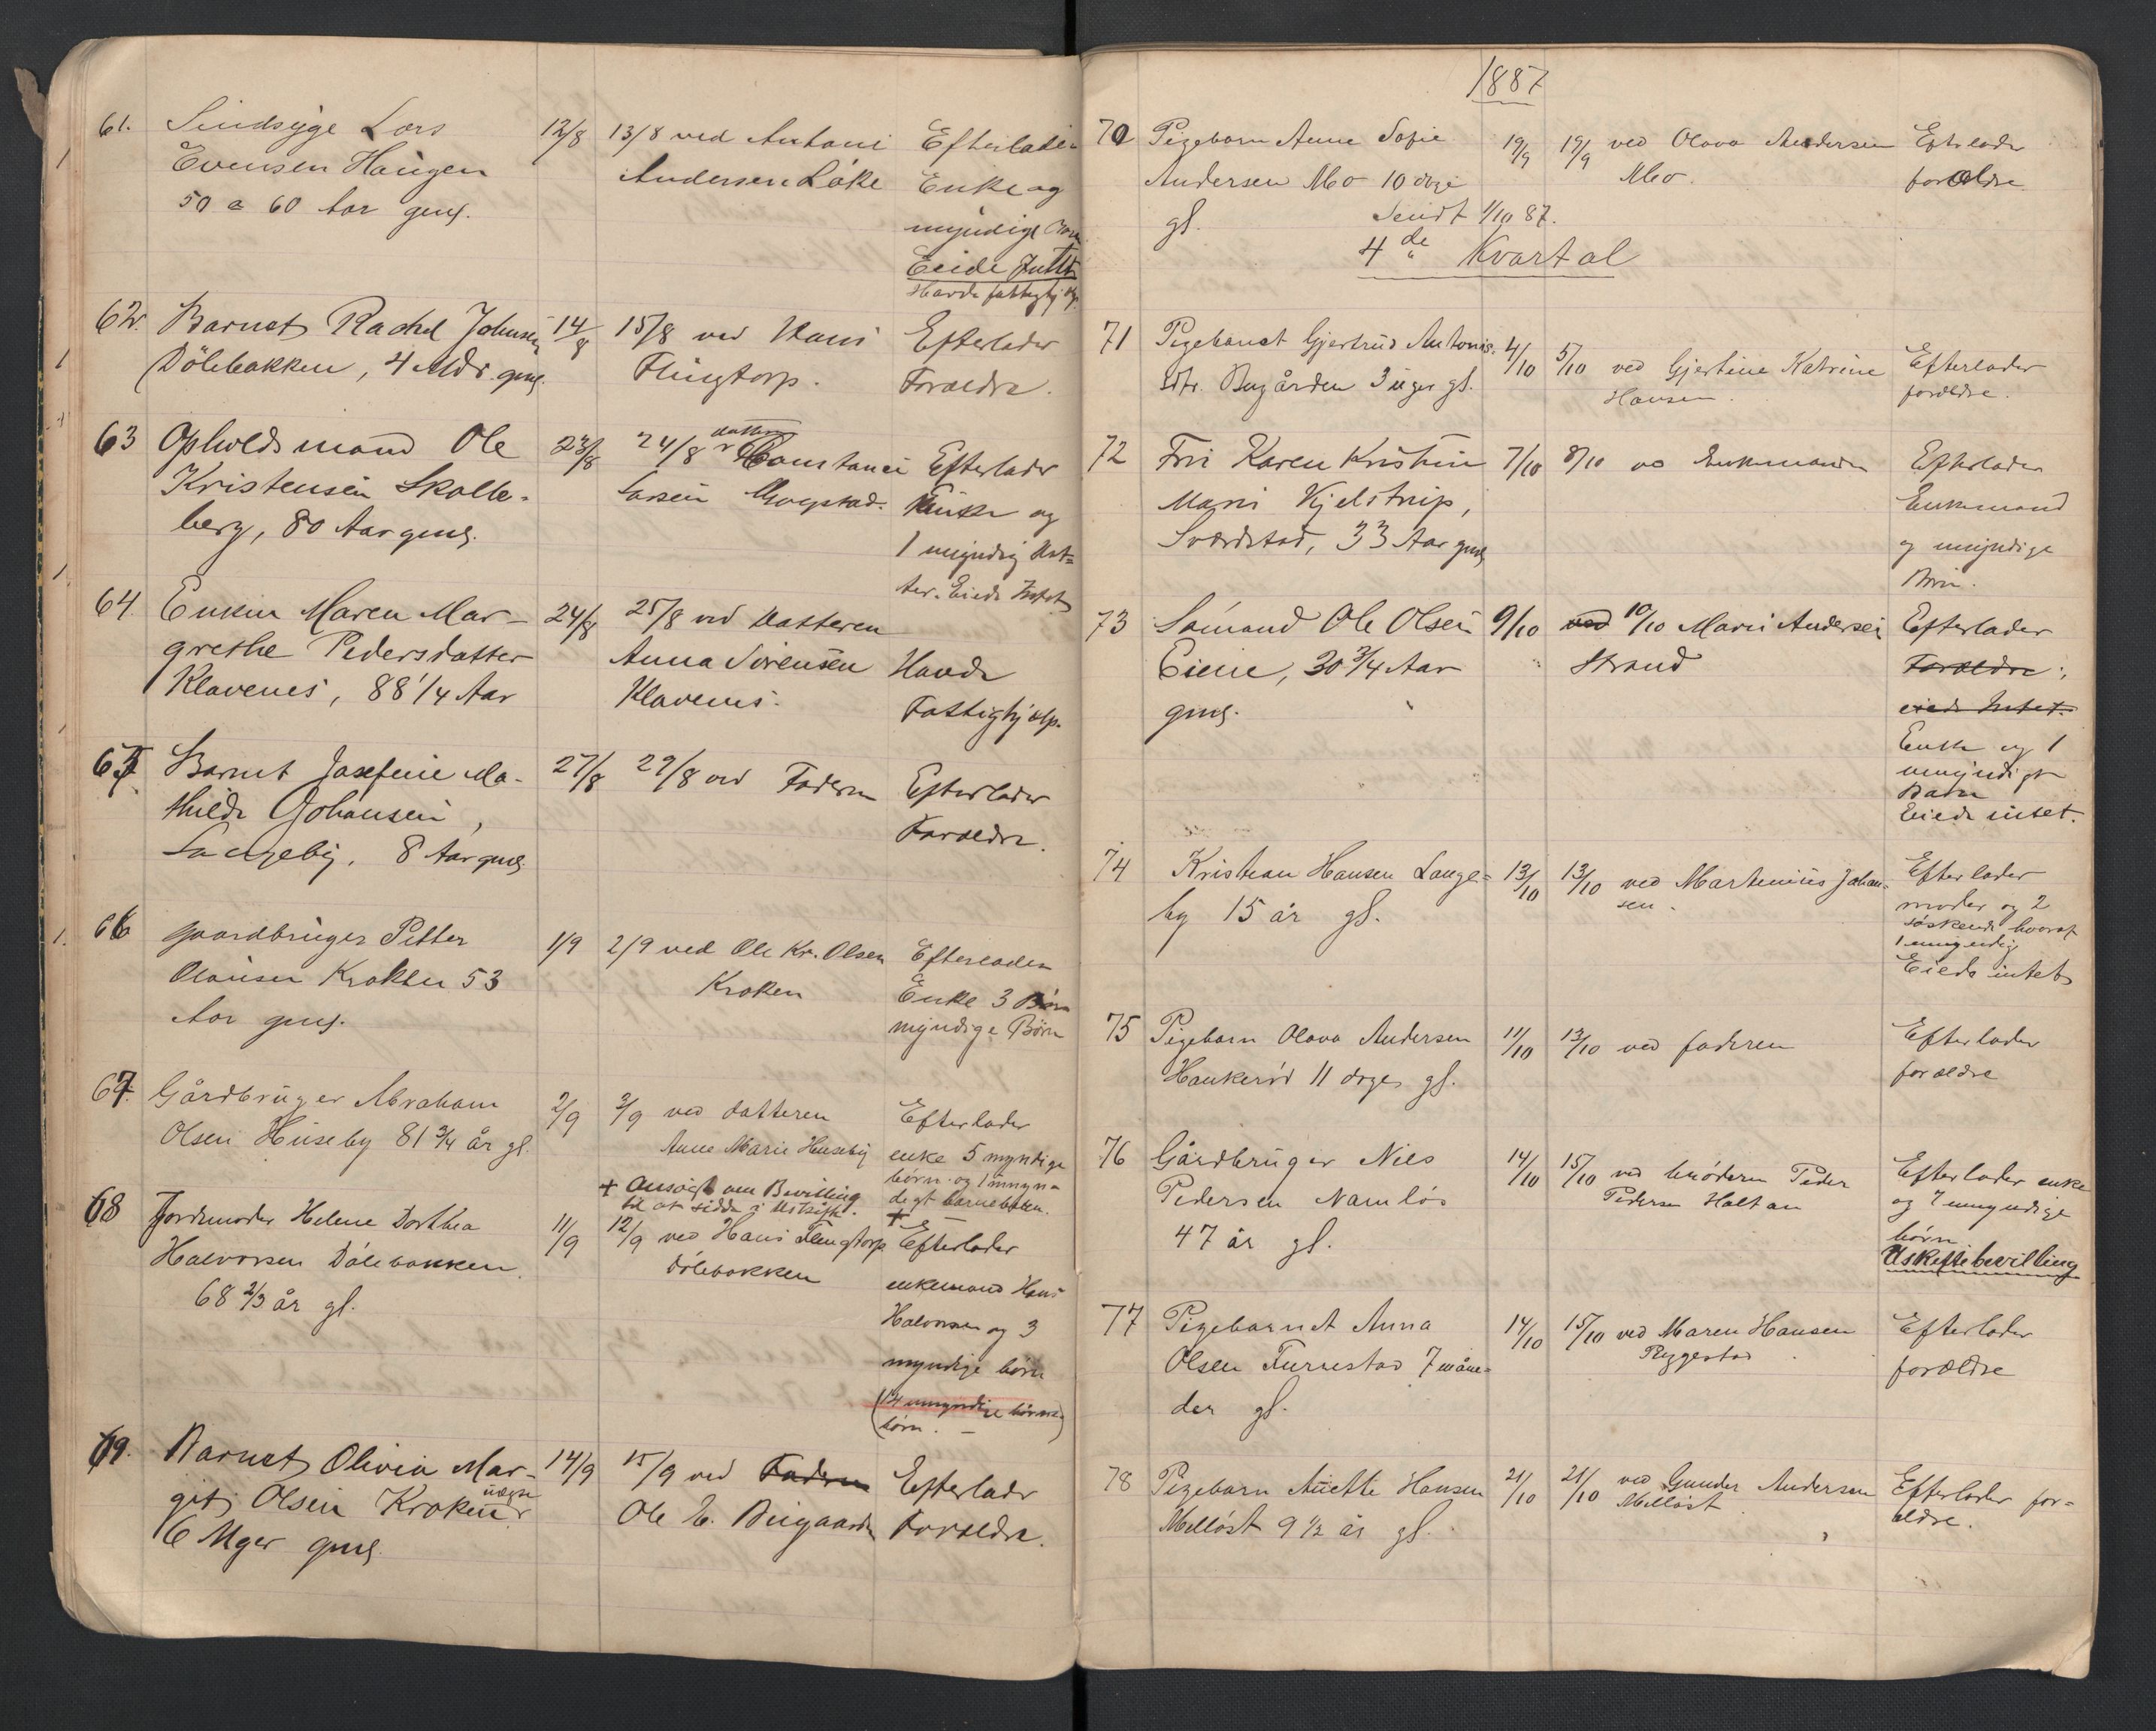 61. Sindsyge Lars
Evensen Haugen
50 a 60 Aar gml.
12/8
13/8 ved Antoni
Andersen Låke
Efterlader
Enke og
myndige Børn
Eiede Intet
Havde fattighj.
62. Barnet Rachel Johnsen
Dölebakken, 4 Mdr. gml.
14/8
15/8 ved Hans
Flingtorp.
Efterlader
Foraeldre.
63 Opholdsmand Ole
Kristensen Skolle-
berg, 80 Aar gml.
23/8
24/8 v Datteren Constance
Larsen Mogstad.
Efterlader
Enke og
1 myndig Dat-
ter. Eiede Intet
64. Enken Maren Mar-
grethe Pedersdatter
Klavenes, 88 1/4 Aar
24/8
25/8 ved Datteren
Anna Sörensen
Klavenes.
Havde
Fattighjælp.
65 Barnet Josefine Ma-
thilde Johansen,
Langeby, 8 Aar gml.
27/8
29/8 ved Faderen
Efterlader
Foraeldre.
66 Gaardbruger Petter
Olausen Krokken 53
Aar gml.
1/9
2/9 ved Ole Kr. Olsen
Kroken
Efterlader
Enke 3 Børn
myndige Børn
67. Gårdbruger Abraham
Olsen Huseby 81 3/4 år gl.
2/9
3/9 ved datteren
Anne Marie Huseby
+ Ansøgt om Bevilling
til at sidde i Uskifte.
Efterlader
enke 5 myndige
børn og 1 umyn-
digt barnebarn.
+
68 Jordmoder Helene Dorthea
Halvorsen Dölebakken.
68 2/3 år gl.
11/9
12/9 ved Hans Flengtorp
Dölebakken
Efterlader
enkemand Hans
Halvorsen og 3
myndige børn
(12 umyndige børne-
børn. –
69. Barnet Olivia Mar-
git Olsen Kroken uægte
6 Uger gml.
14/9
15/9 ved Faderen
Ole E. Bugaarden
Efterlader
Foraeldre.
1887
70 Pigebarn Anne Sofie
Andersen Mo 10 dage
gl.
19/9
19/9 ved Olava Andersen
Mo.
Efterlader
forældre
Sendt 1/10 87.
4de Kvartal
71 Pigebarnet Gjertrud Antonis-
dtr. Bugården 3 uger gl.
4/10
5/10 ved Gjertine Katrine
Hansen.
Efterlader
forældre.
72 Fru Karen Kristine
Marie Kjelstrup,
Sværdstad, 33 Aar gml
7/10
8/10 ved Enkemanden
Efterlader
Enkemand
og umyndige
Børn.
73 Sömand Ole Olsen
Eiene, 30 3/4 Aar
gml.
9/10
ved 10/10 Maren Andersen
Strand
Efterlader
Foraeldre,
eiede Intet.
Enke og 1
umyndigt
Barn
Eiede intet.
74 Kristian Hansen Lange-
by 15 år gl.
13/10
13/10 ved Martenius Johan-
sen.
Efterlader
moder og 2
søskende hvoraf
1 umyndig
Eiede intet
75 Pigebarn Olava Andersen
Haukerød 11 dage gl.
11/10
13/10 ved faderen
Efterlader
forældre
76 Gårdbruger Nils
Pedersen Namløs
47 år gl.
14/10
15/10 ved brøderen Peder
Pedersen Haltan
Efterlader enke
og 7 umyndige
børn.
Uskiftebevilling
77 Pigebarnet Anna
Olsen Furustad 7 måne-
der gl.
14/10
15/10 ved Maren Hansen
Ryggestad
Efterlader
forældre
78 Pigebarn Anette Hansen
Melløst 9 1/2 år gl.
21/10
21/10 ved Gunder Andersen
Melløst
Efterlader for-
ældre.